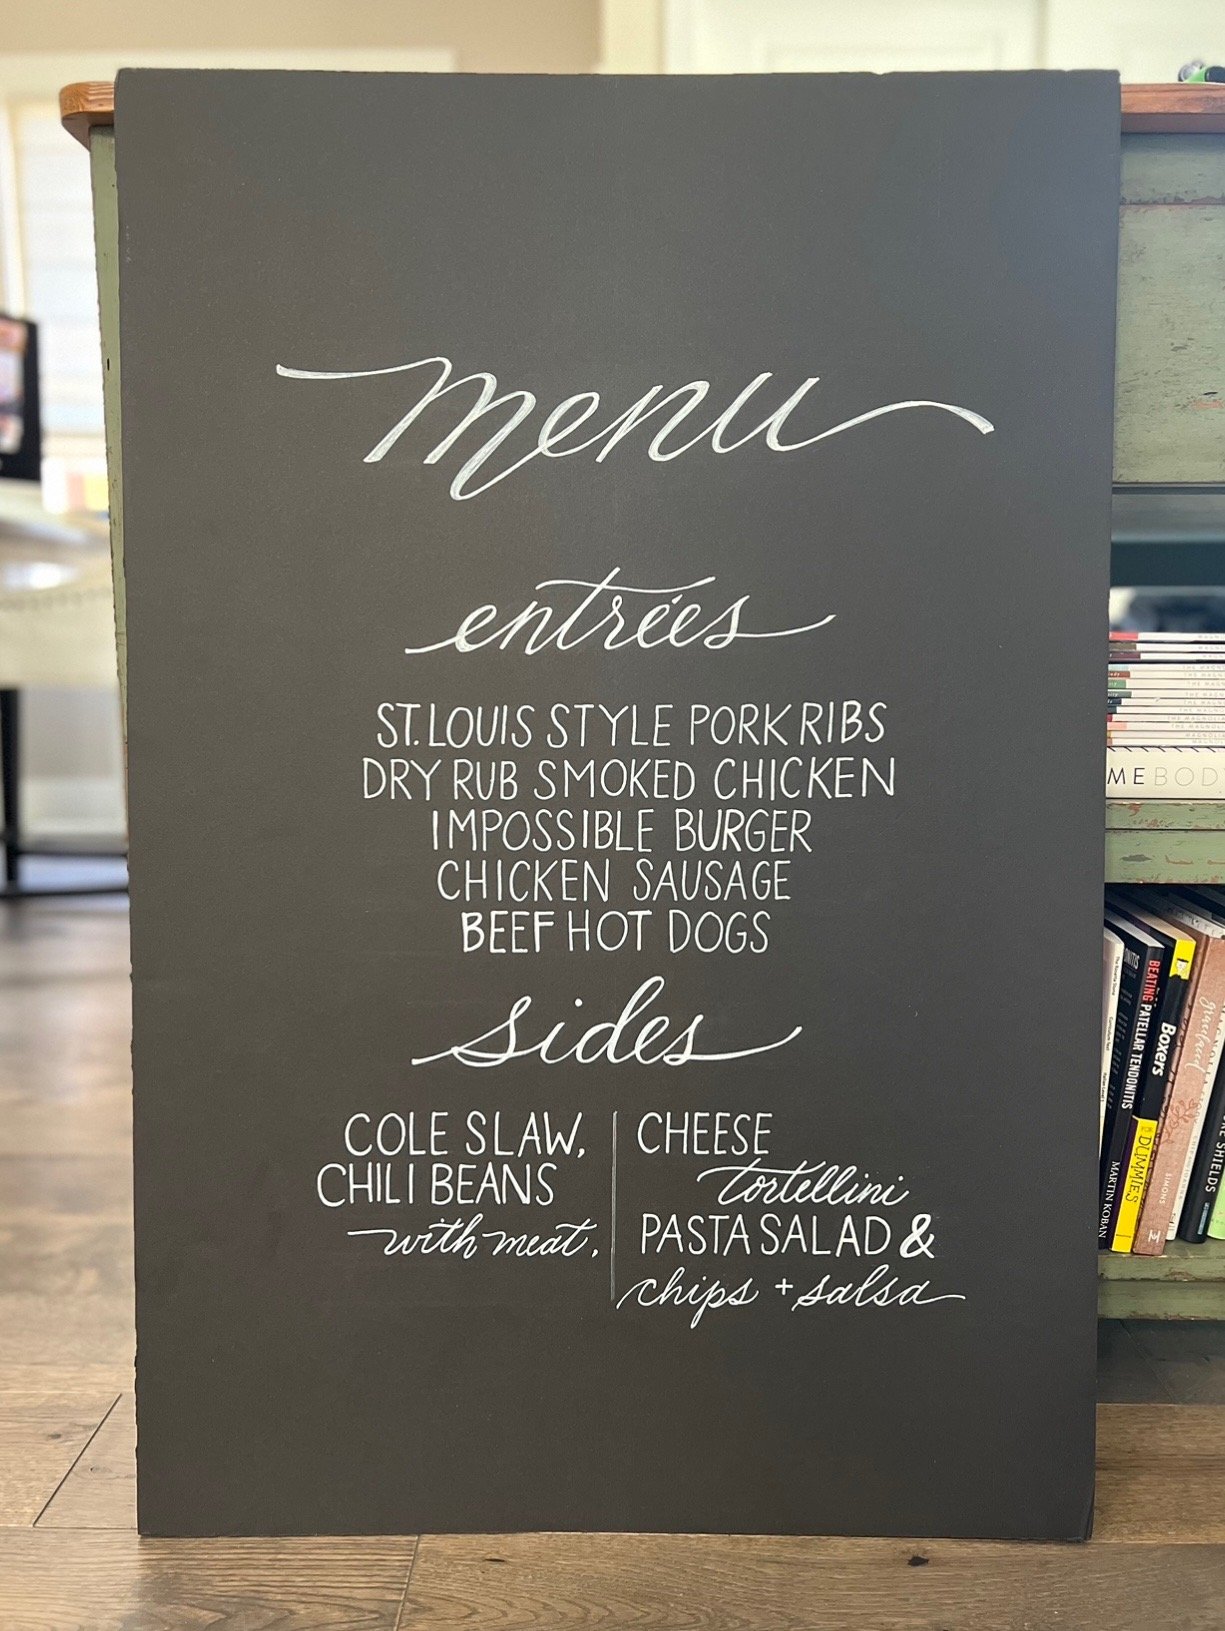 menu
entrées
ST. LOUIS STYLE PORK RIBS
DRY RUB SMOKED CHICKEN
IMPOSSIBLE BURGER
CHICKEN SAUSAGE
BEEF HOT DOGS
sides
COLE SLAW,
CHILI BEANS
with meat,
CHEESE
tortellini
PASTA SALAD &
chips + salsa
MEBODY
BEATING PATELLAR TENDONITIS
MARTIN KOBAN
Boxers
DUMMIES
SIMONS
SHIELDS